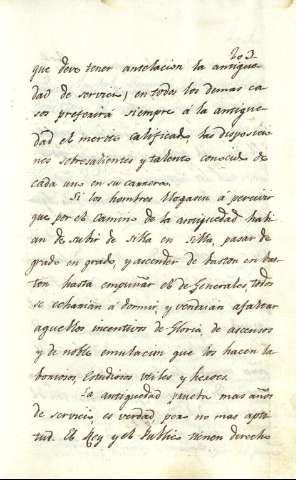 203.
que deve tener antelacion la antigue
dad de servicio; en todos los demas ca
sos preferirá siempre á la antigue
dad el merito calificado, las disposicio
nes sobresalientes y talento conocido de
cada uno en su carrera.
Si los hombres llegasen á percivir
que por el camino de la antiguedad havi
an de subir de silla en silla, pasar de
grado en grado, y ascender de baston en bas
ton hasta empuñar el de Generales, todos
se echarian á dormir, y vendrian á faltar
aquellos incentivos de Gloria, de ascensos
y de noble emulacion que los hacen la
boriosos, Estudiosos utiles y heroes.
La antiguedad prueba mas años
de servicio, es verdad, pero no mas apti
tud. El Rey y el Publico tienen derecho